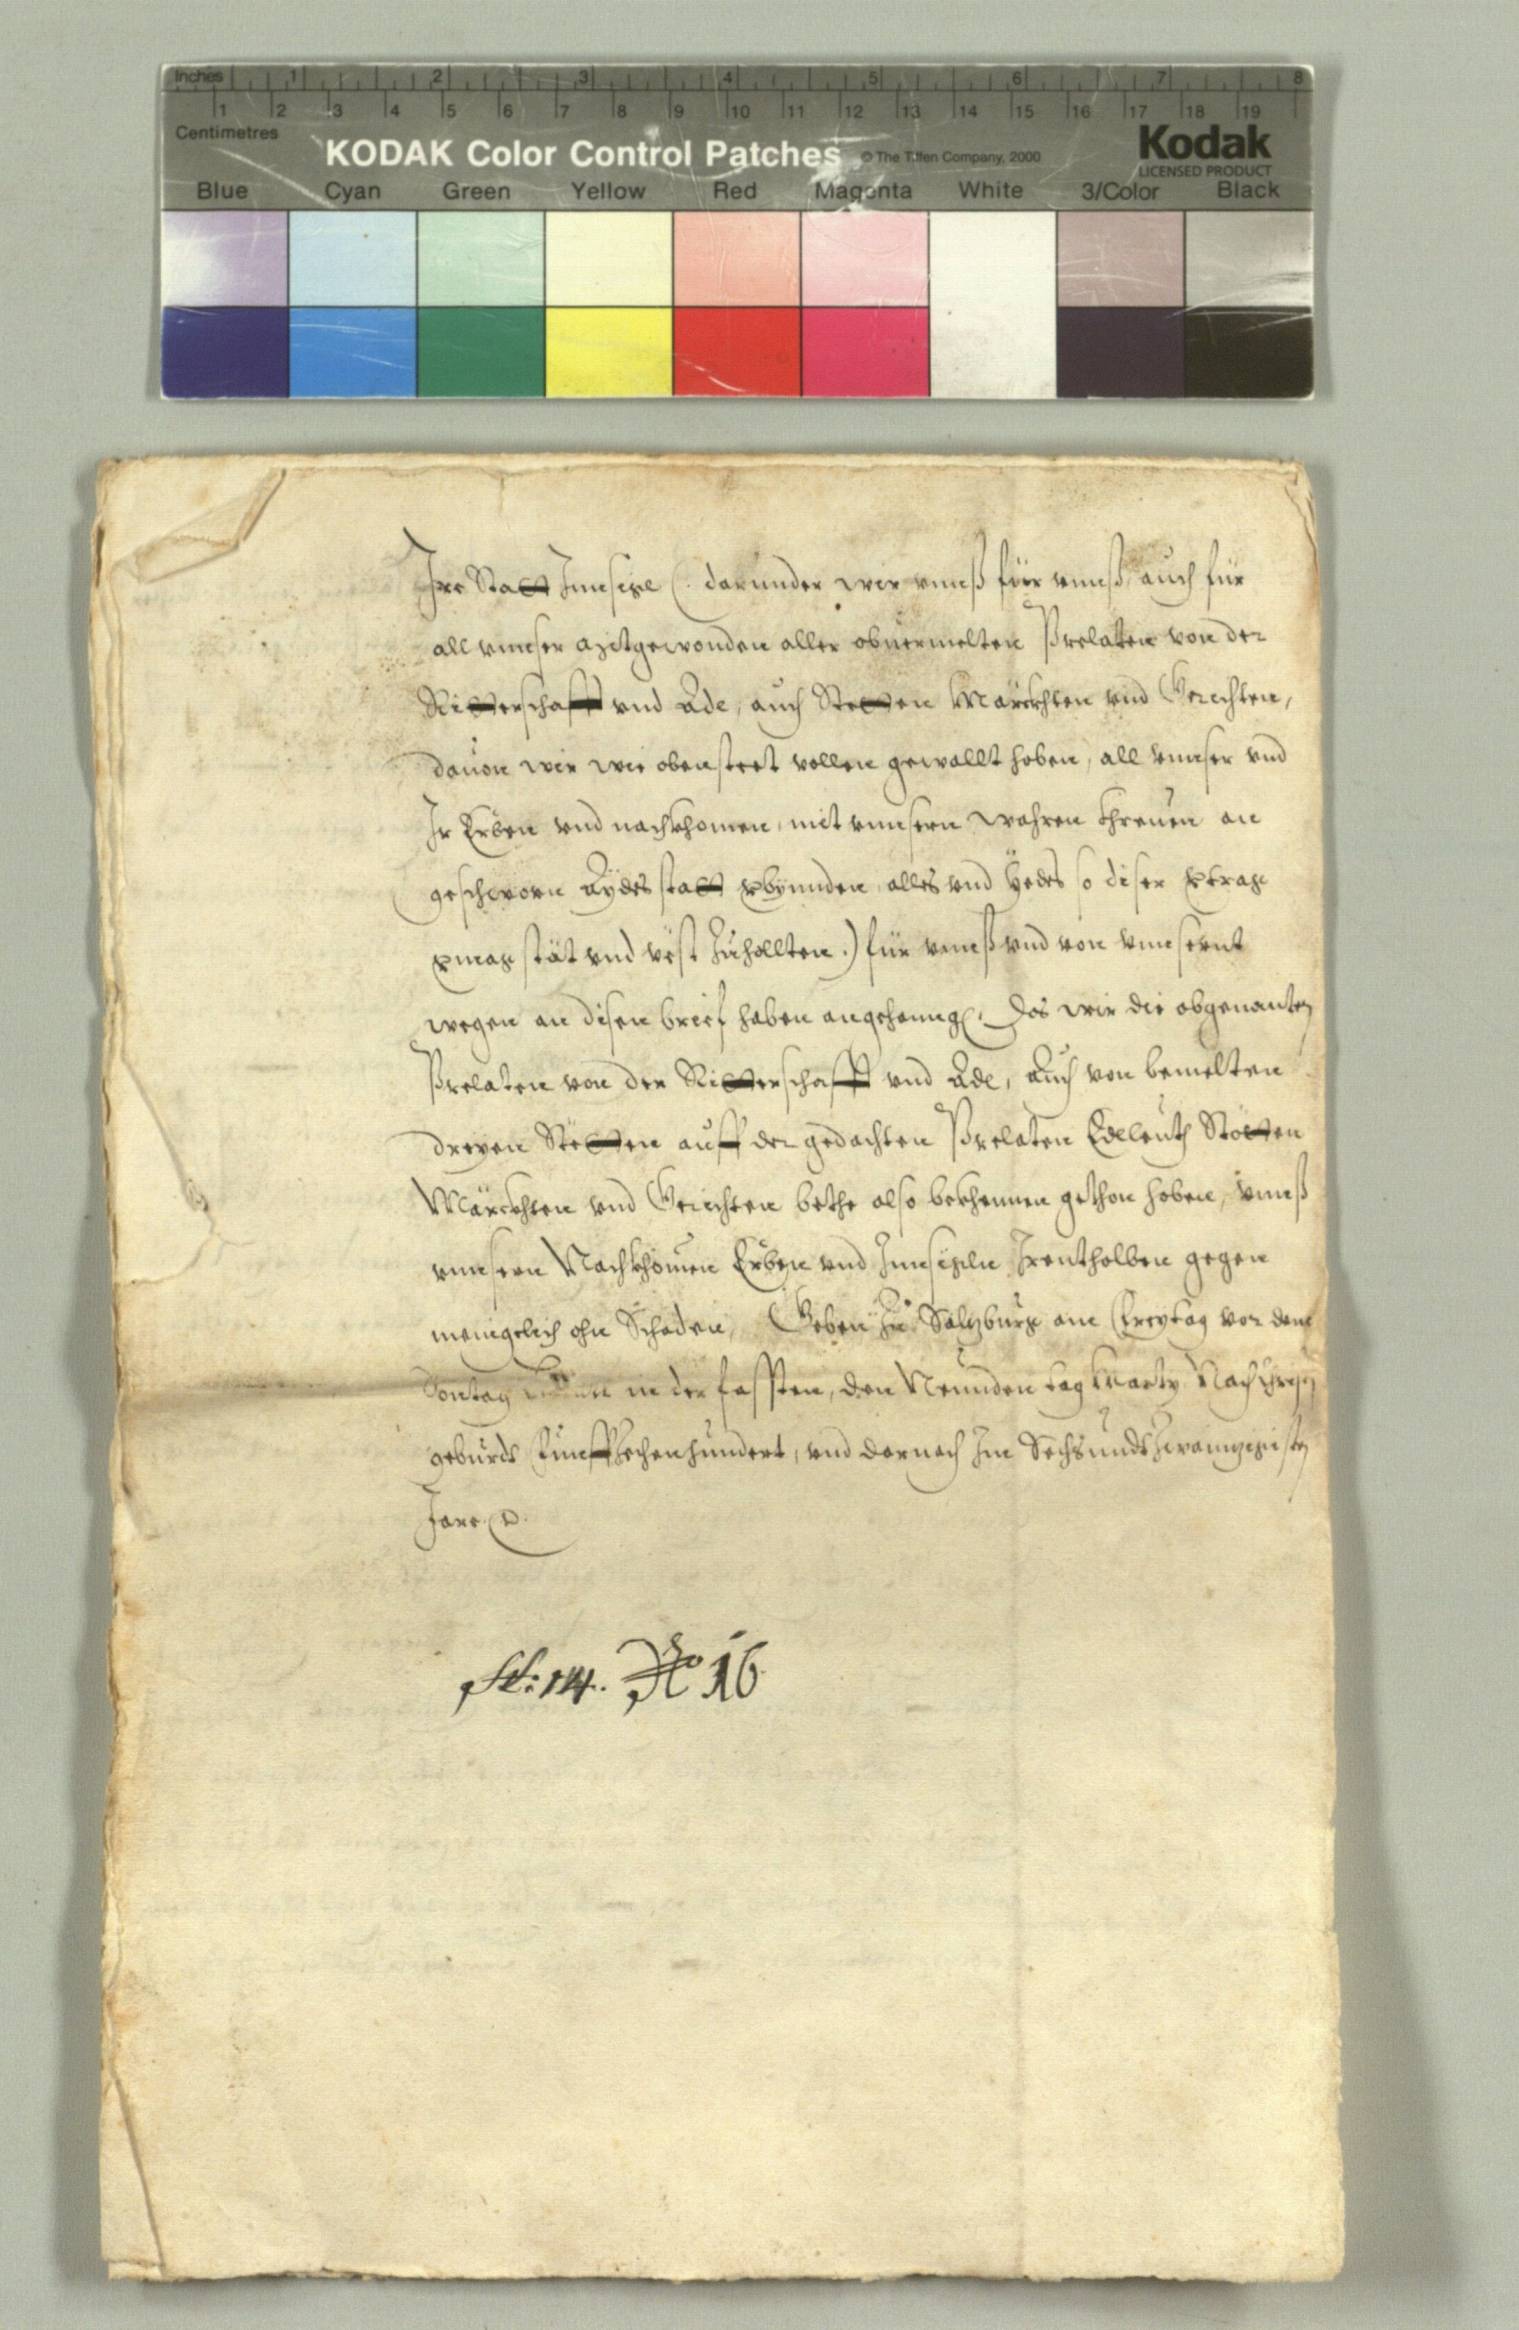 Inches 1 2 3 4 5 6 7 8
1 2 3 4 5 6 7 8 9 10 11 12 13 14 15 16 17 18 19
Centimetres
KODAK Color Control Patches © The Tiffen Company, 2000 Kodak
LICENSED PRODUCT
Blue Cyan Green Yellow Red Magenta White 3/Color Black
Ire Statt Innsigl (. darunder wir vnnß für vnnß, auch für
all vnnser mitgewonden aller obuermelten Prelaten von der
Ritterschafft vnd Adl, auch Stetten Märckhten vnd Gerichten,
dauon wir wie obensteet vollen gewallt haben, all vnnser vnd
Ir Erben vnd nachkhomen, mit vnnsern wahren threuen an
geschworn Aydes statt verbünnden alles vnd Yedes so diser vertrag
vermag stät vnd vest zuhallten.) für vnnß vnd von vnnsernt
wegen an disen brief haben angehenngt. Das wir die obgenanten
Prelaten von der Ritterschafft vnd Adl, Auch von bemelten
dreyen Stetten auff der gedachten Prelaten Edlleuth Stötten
Märckhten vnd Gerichten bethe also bekhennen gethon haben, vnnß
vnnsern Nachkhomen Erben vnd Innsigln Irenthalben gegen
meniglich ohn Schaden, Geben zu Salzburg am Freytag vor dem
Sontag in der fassten, den Neunden tag Marty Nach Christj
geburdt Fünffzechenhundert, vnd darnach Im Sechsundtzwainzigisten
Jare
fl: 14. No 16